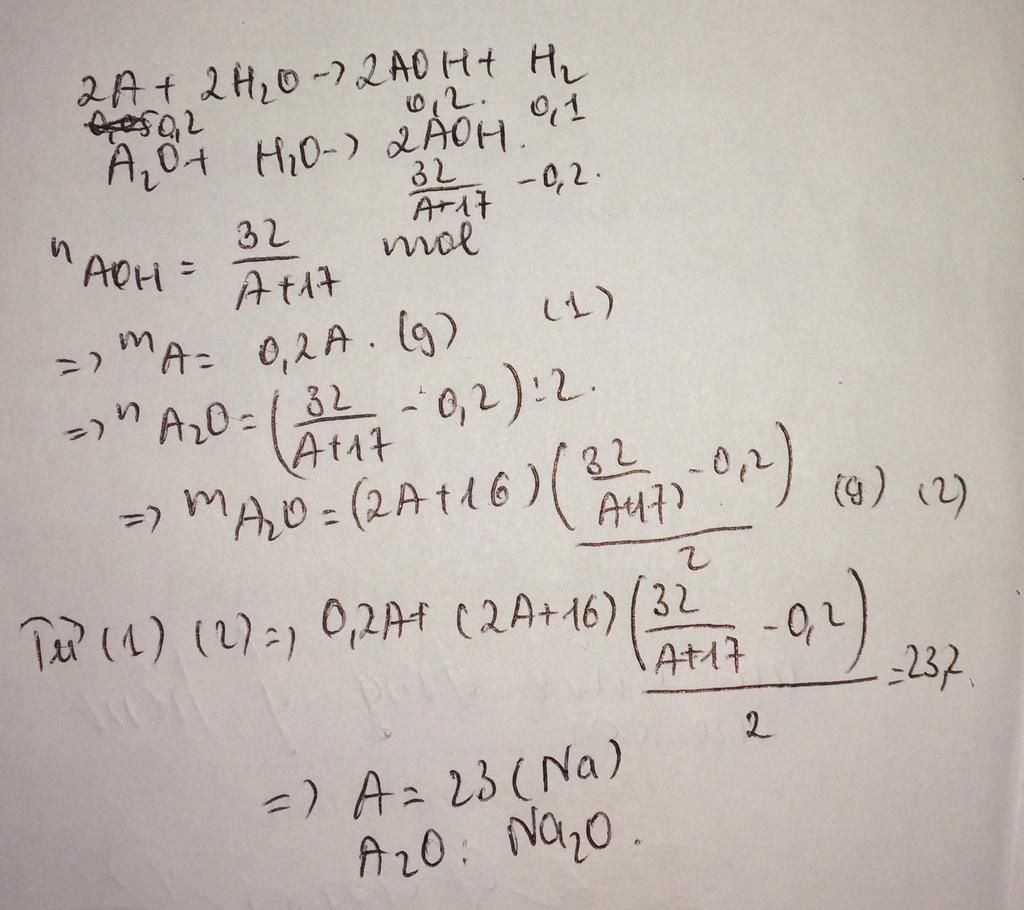 2A + 2H₂O -> 2AOH + H₂
0,2 0,2. 0,1
A₂O + H₂O -> 2AOH.
32/(A+17) - 0,2.
n AOH = 32/(A+17) mol
=> m A = 0,2A. (g) (1)
=> n A₂O = (32/(A+17) - 0,2) : 2.
=> m A₂O = (2A+16) (32/(A+17) - 0,2)/2 (g) (2)
Từ (1) (2) => 0,2A + (2A+16) (32/(A+17) - 0,2)/2 = 23,2.
=> A = 23 (Na)
A₂O : Na₂O.